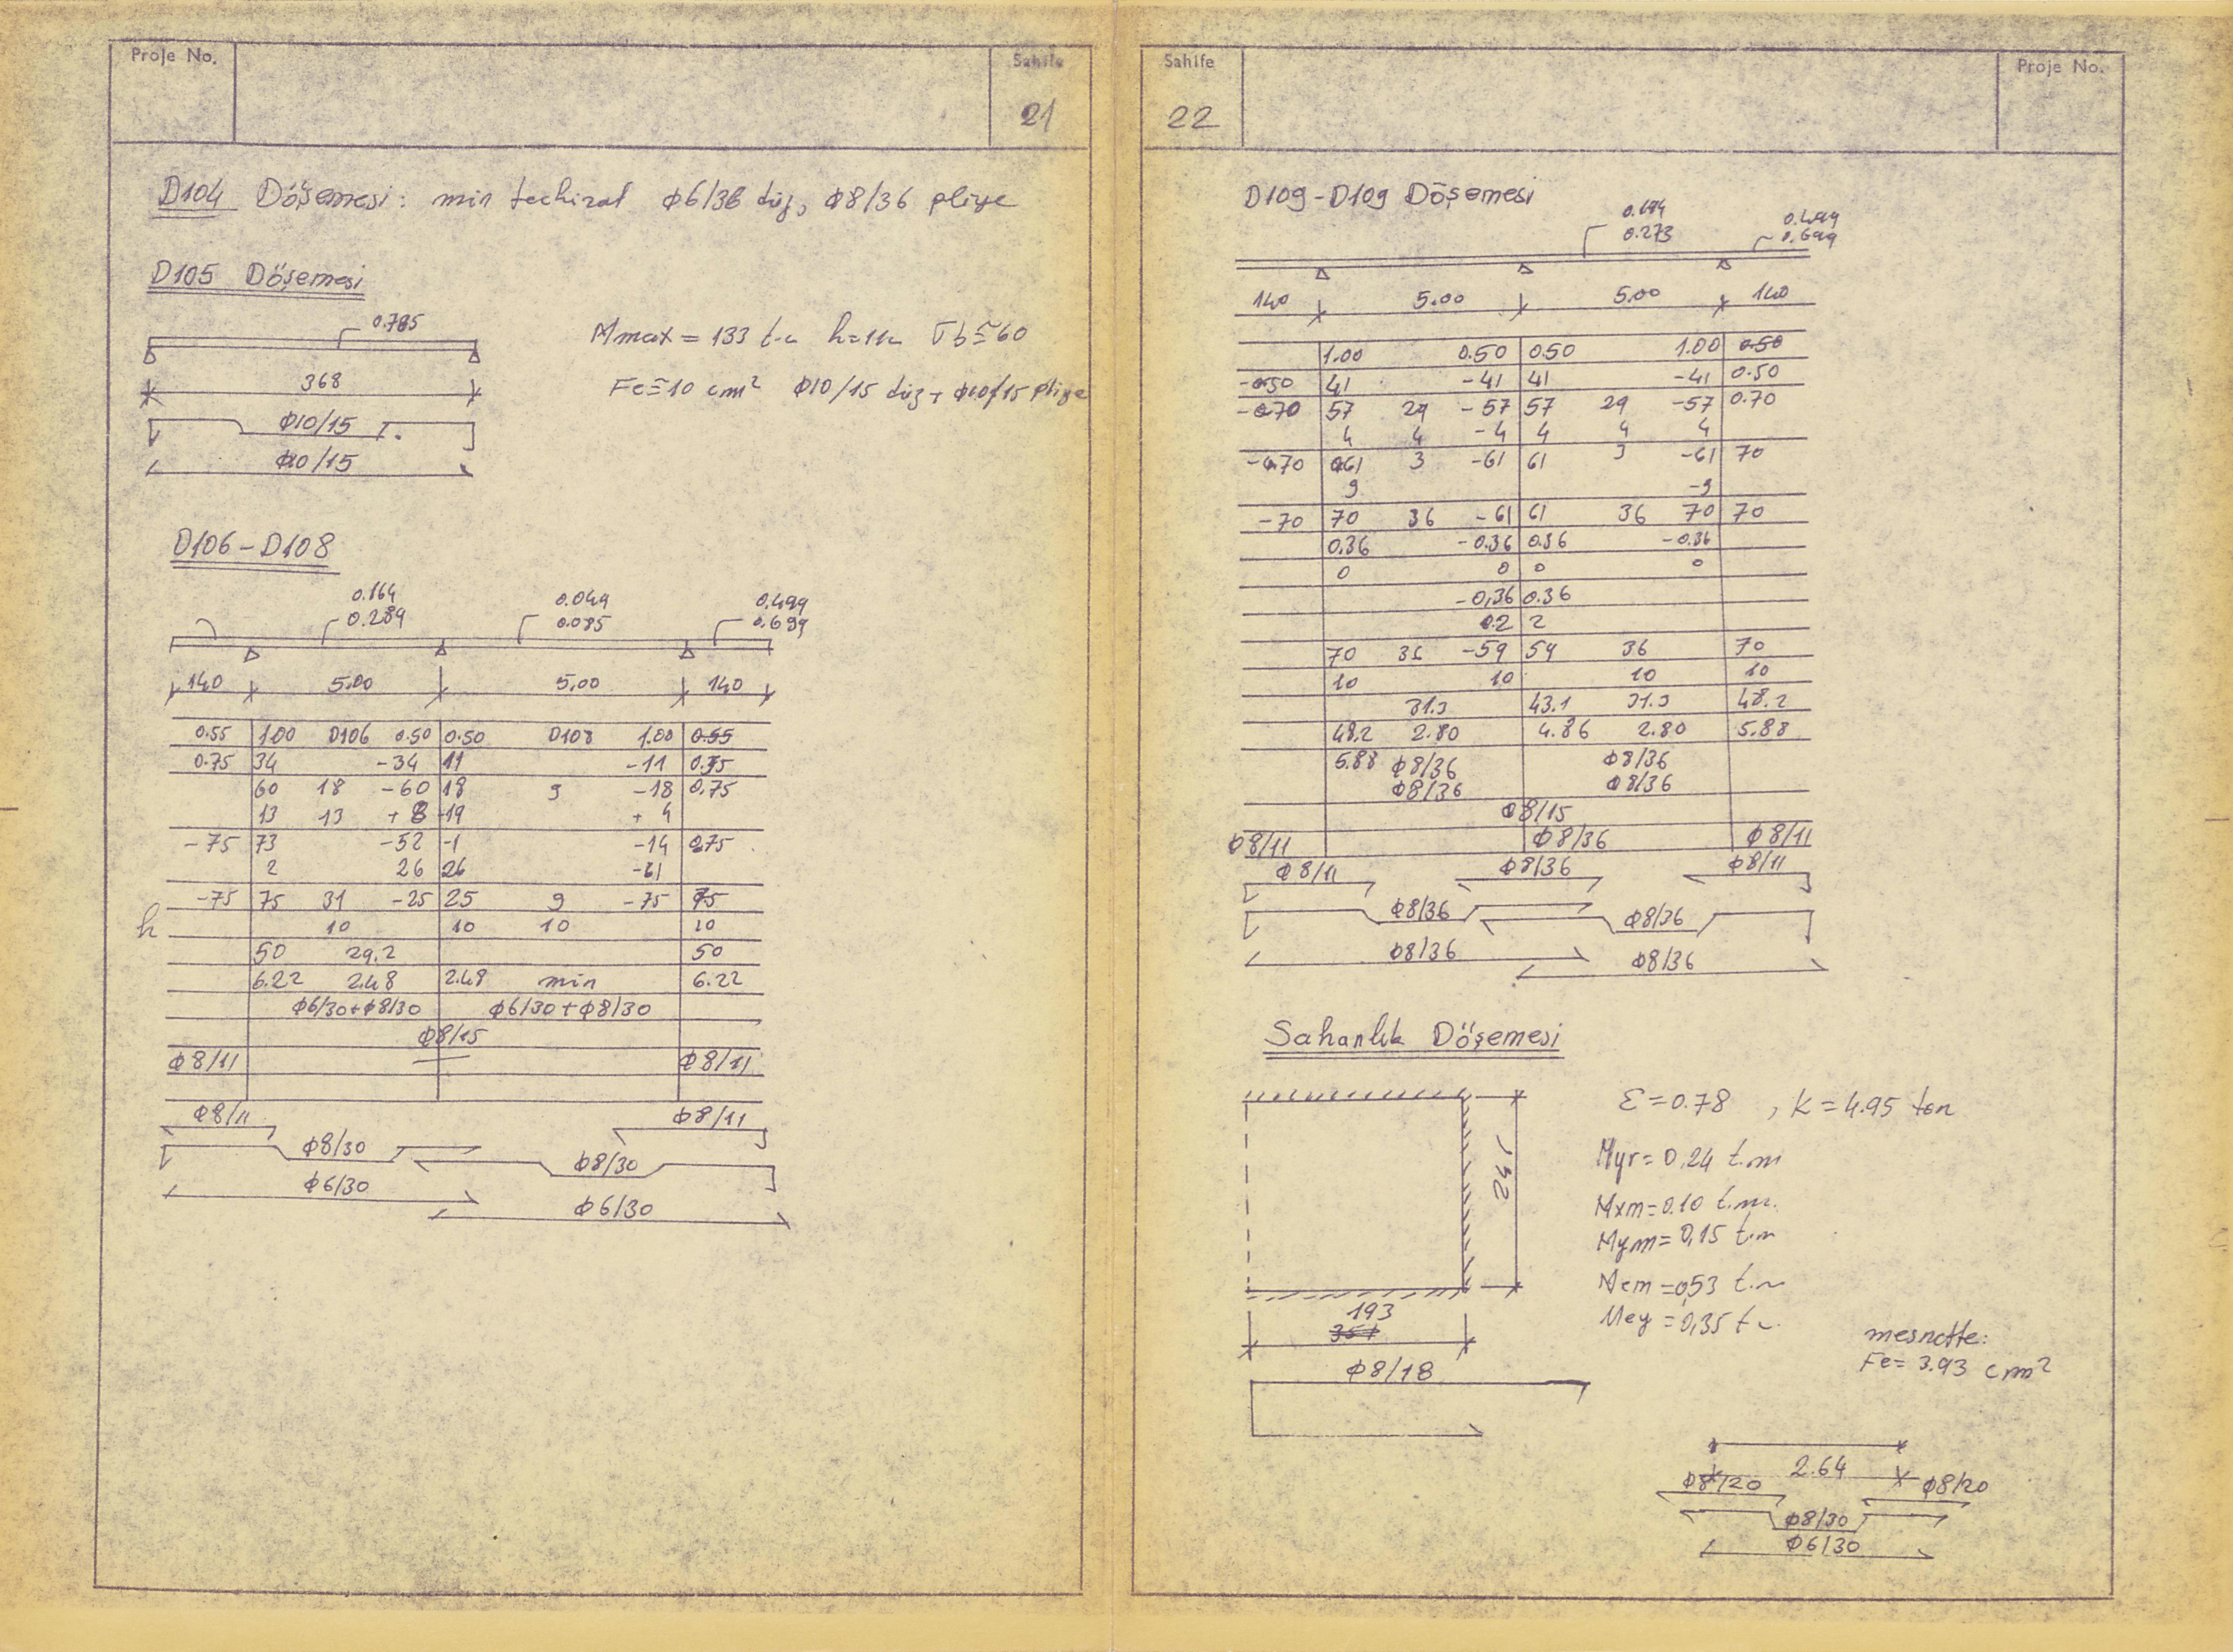 Proje No.
Sahife
21
D104 Döşemesi: min techizat φ6/36 düz, φ8/36 pliye
D105 Döşemesi
0.785
368
φ10/15
φ10/15
Mmax = 133 t.m h=11 σb≅60
Fe≅10 cm² φ10/15 düz + φ10/15 pliye
D106-D108
0.164 0.049 0.499
0.289 0.085 0.699
140 5.00 5.00 140
0.55 1.00 D106 0.50 0.50 D108 1.00 0.55
0.75 34 -34 11 -11 0.75
60 18 -60 18 9 -18 0.75
13 13 +8 -19 + 4
-75 73 -52 -1 -14 0.75
2 26 26 -61
-75 75 31 -25 25 9 -75 75
h 10 10 10 10
50 29.2 50
6.22 2.48 2.48 min 6.22
φ6/30+φ8/30 φ6/30+φ8/30
φ8/15
φ8/11 φ8/11
φ8/11 φ8/11
φ8/30 φ8/30
φ6/30 φ6/30
Sahife
22
Proje No.
D109-D109 Döşemesi
0.273 0.699
140 5.00 5.00 140
1.00 0.50 0.50 1.00 0.50
-0.50 41 -41 41 -41 0.50
-0.70 57 29 -57 57 29 -57 0.70
4 4 -4 4 4 4
-0.70 0.61 3 -61 61 3 -61 70
9 -9
-70 70 36 -61 61 36 70 70
0.36 -0.36 0.36 -0.36
0 0 0 0
-0,36 0.36
0.2 2
70 36 -59 59 36 70
10 10 10 10
31.3 43.1 31.3 48.2
48.2 2.80 4.86 2.80 5.88
5.88 φ8/36 φ8/36
φ8/36 φ8/36
φ8/15
φ8/11 φ8/36 φ8/11
φ8/11 φ8/36 φ8/11
φ8/36 φ8/36
φ8/36 φ8/36
Sahanlık Döşemesi
ε=0.78 , K=4.95 ton
Myr= 0,24 t.m
Mxm=0.10 t.m.
Mym= 0,15 t.m
Mem =0,53 t.m
Mey =0,35 t
193
φ8/18
mesnette:
Fe= 3.93 cm²
2.64
φ8/20 φ8/20
φ8/30
φ6/30